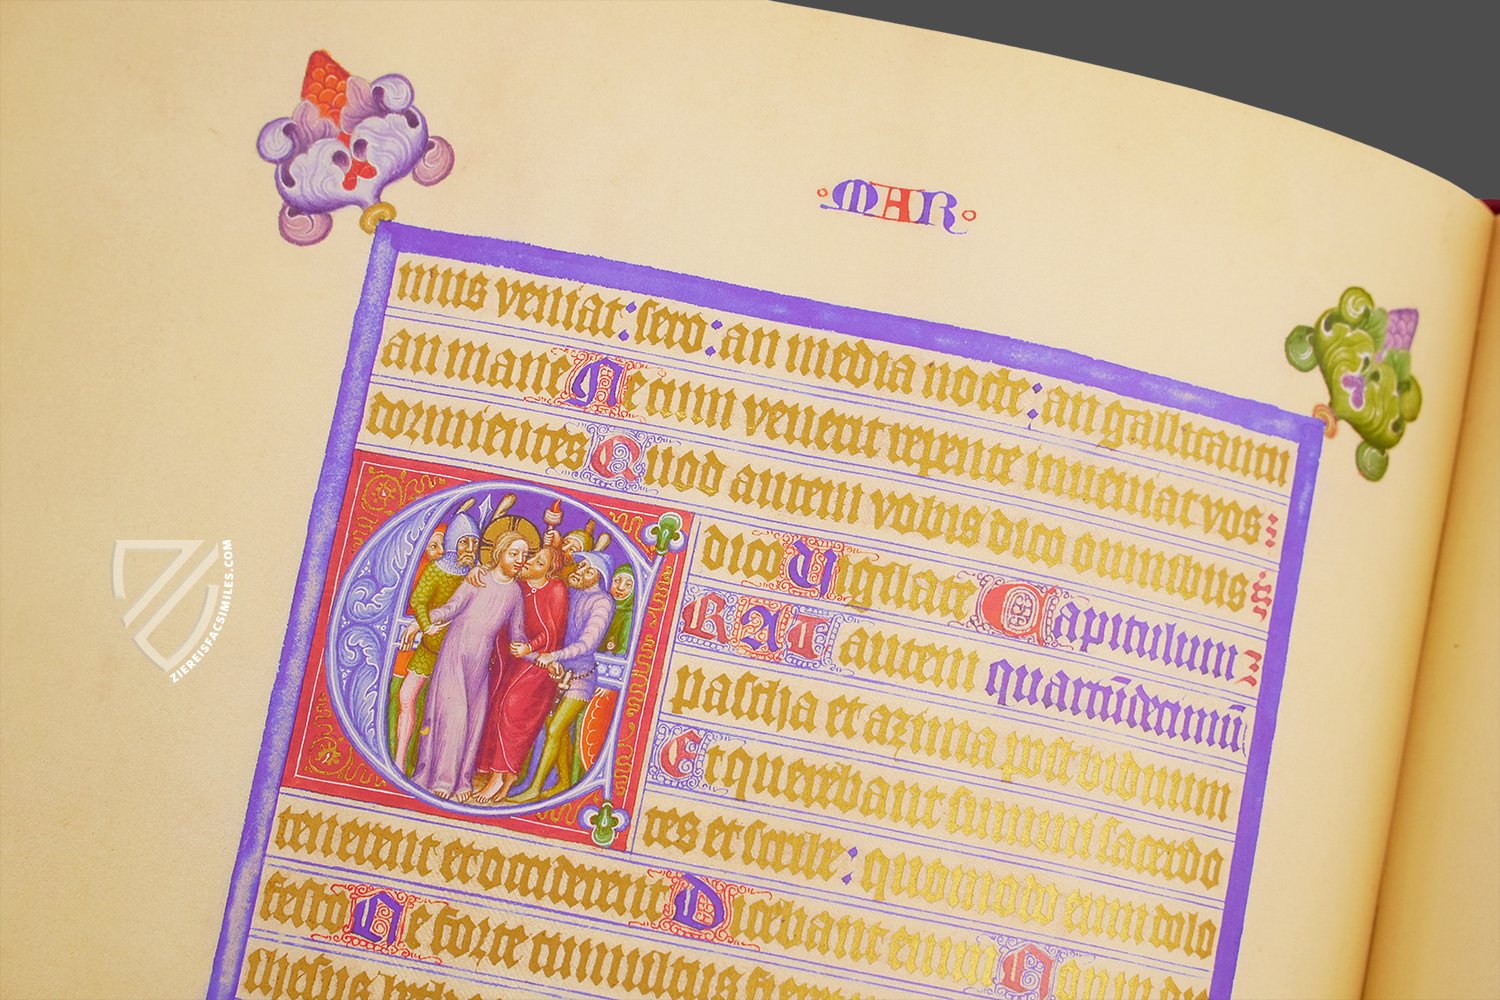 MAR
mus veniat: sero: an media nocte: an gallicantu
an mane Ne cum venerit repente inveniat vos
dormientes Quod autem vobis dico omnibus
dico Vigilate Capitulum
ERAT autem quartūdecimū
pascha et azima post biduum
Et querebant summi sacerdo
tes et scribe: quomodo eum dolo
tenerent et occiderent Dicebant enim
festo Ne forte tumultus
ZIEREISFACSIMILES.COM